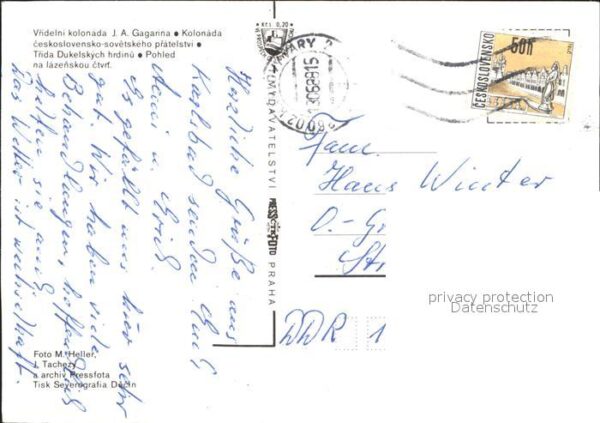 Vřídelní kolonáda J. A. Gagarina • Kolonáda
československo-sovětského přátelství •
Třída Dukelských hrdinů • Pohled
na lázeňskou čtvrť.
Herzliche Grüße aus
Karlsbad senden Euch
u.
Es gefällt uns hier sehr
gut. Wir haben viele
Behandlungen, hoffentlich
helfen sie auch.
Das Wetter ist wechselhaft.
Foto M. Heller,
J. Tachezy
a archiv Pressfota
Tisk Severografia Děčín
Kčs 0,20
VYDAVATELSTVÍ
PRESSFOTO
PRAHA
VARY
ČESKOSLOVENSKO
50h
Fam.
Hans Winter
O.-G
Str
DDR 1
privacy protection
Datenschutz